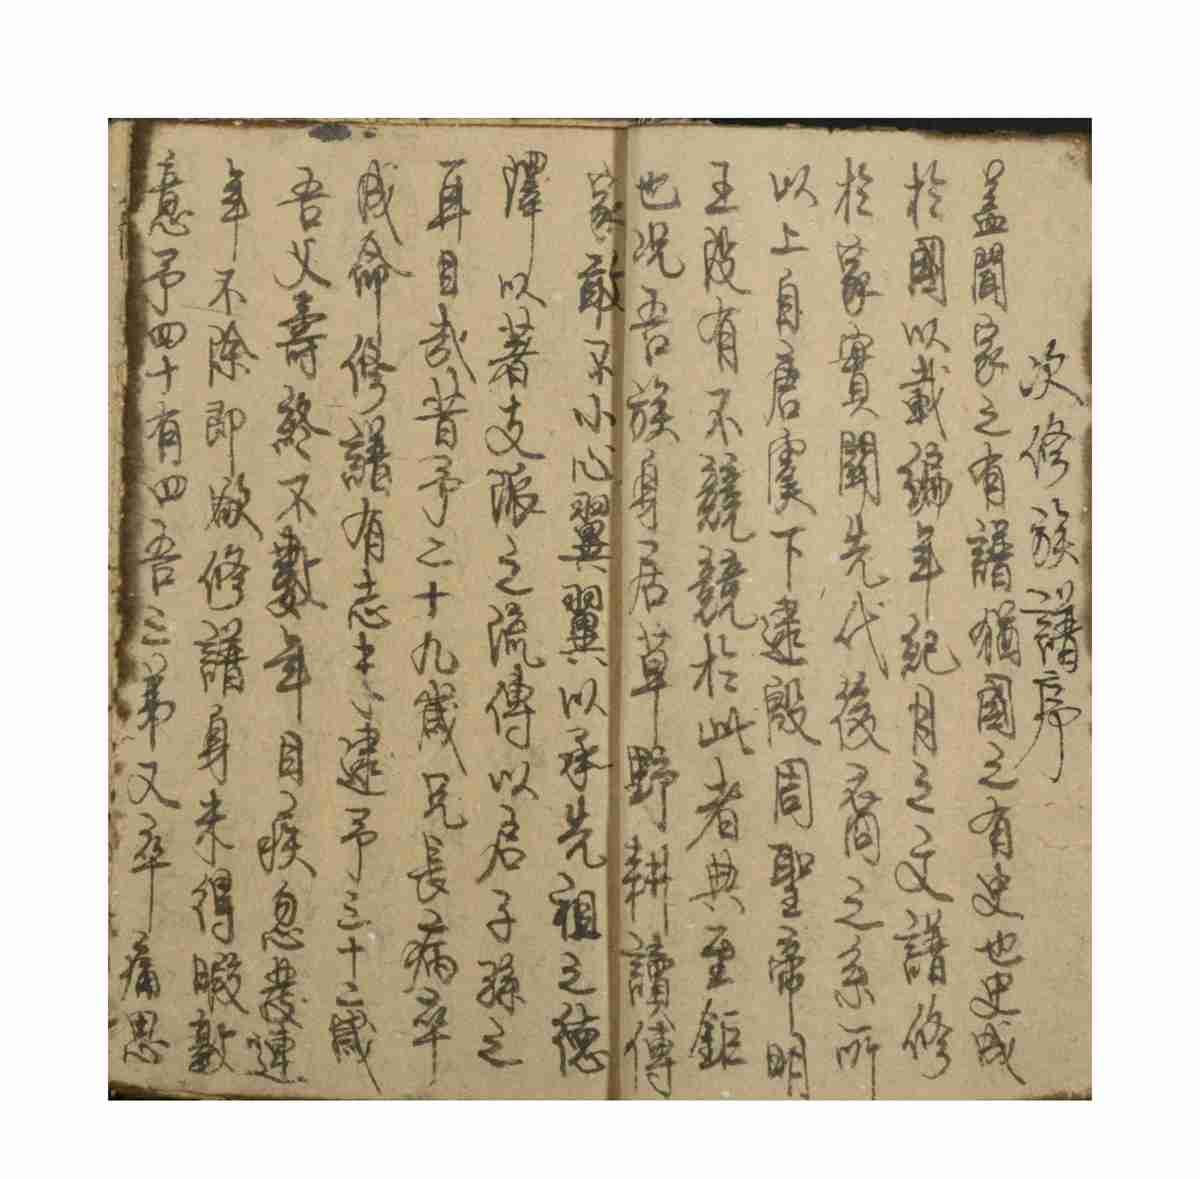 次修族譜序
蓋聞家之有譜猶國之有史也史成
於國以載編年紀月之文譜修
於家實聞先代後裔之系所
以上自唐虞下逮殷周聖帝明
王段有不競競於此者典至鉅
也况吾族身居草野耕讀傳
家敢不小心翼翼以承先祖之德
澤以著支派之流傳以启子孫之
耳目哉昔予二十九歲兄長病卒
成命修譜有志未逮予三十二歲
吾父壽終不數年目疾忽發連
年不除即欲修譜身未得暇
意予四十有四吾三弟又卒痛思